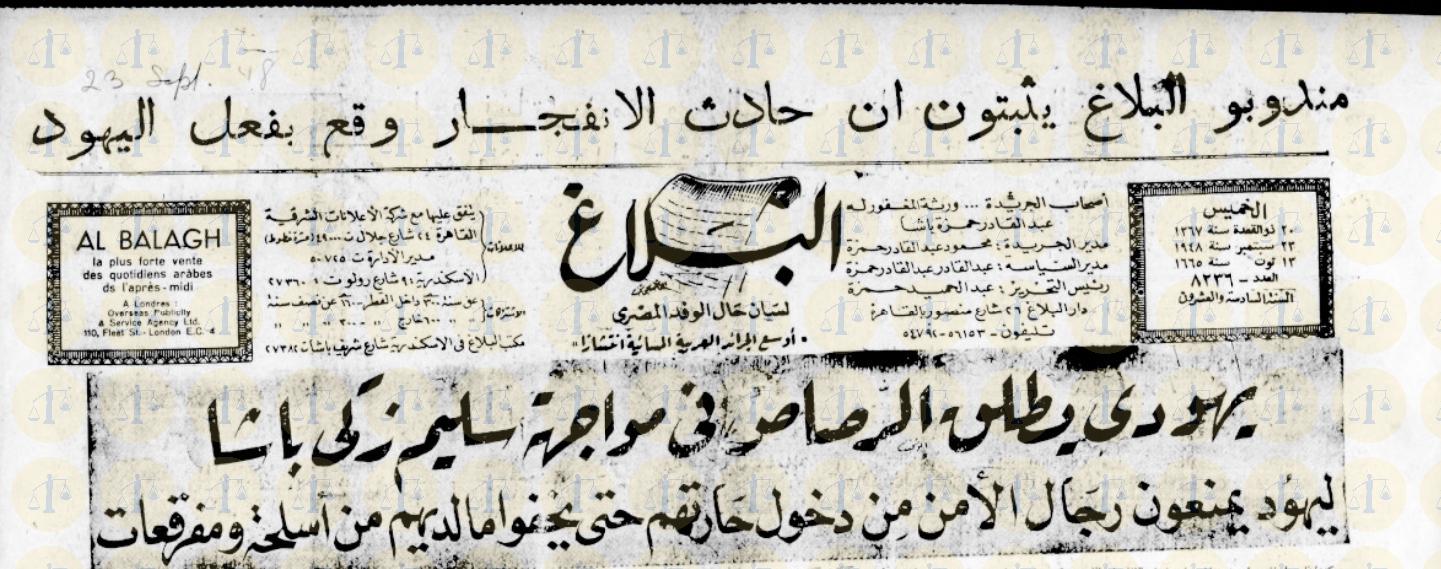 23 Sept. 48
مندوبو البلاغ يثبتون ان حادث الانفجار وقع بفعل اليهود
الخميس
٢٠ ذو القعدة سنة ١٣٦٧
٢٣ سبتمبر سنة ١٩٤٨
١٣ توت سنة ١٦٦٥
العدد - ٨٢٣٦
السنة السادسة والعشرون
أصحاب الجريدة ... ورثة المغفور له
عبد القادر حمزة باشا
مدير الجريدة : محمود عبد القادر حمزة
مدير السياسة : عبد القادر عبد القادر حمزة
رئيس التحرير : عبد الحميد حمزة
دار البلاغ ٢٦ شارع منصور بالقاهرة
تليفون - ٥٦١٥٣ - ٥٤٧٩٢
البلاغ
لسان حال الوفد المصري
« أوسع الجرائد العربية المسائية انتشارا »
للاعلانات
يتفق عليها مع شركة الأعلانات الشرقية
القاهرة ٢٤ شارع جلال ت
مدير الادارة ت ٥٠٧٤٥
الأسكندرية شارع رولو ت ٢٧٣٦٠
الاشتراكات
عن سنة داخل القطر عن نصف سنة
خارج
مكتب البلاغ فى الاسكندرية شارع شريف باشا ت ٢٧٣٨٢
AL BALAGH
la plus forte vente
des quotidiens arabes
ds l'après-midi
A Londres :
Overseas Publicity
& Service Agency Ltd.
110, Fleet St.- London E.C. 4
يهودى يطلق الرصاص فى مواجهة سليم زكى باشا
اليهود يمنعون رجال الأمن من دخول حارتهم حتى يخفوا ما لديهم من أسلحة ومفرقعات